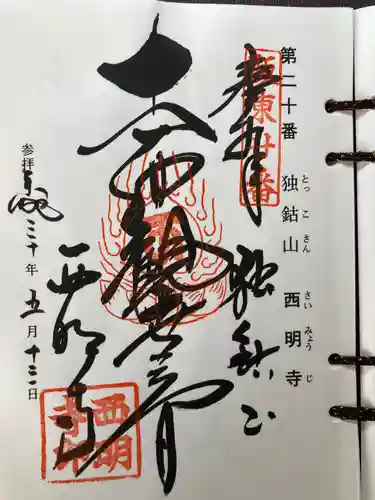 第二十番 独鈷山 西明寺
とっこさん さいみょうじ
坂東廿番
奉拝
独鈷山
十一面観世音
西明寺
西明寺印
参拝 平成三十年 五月 十三日